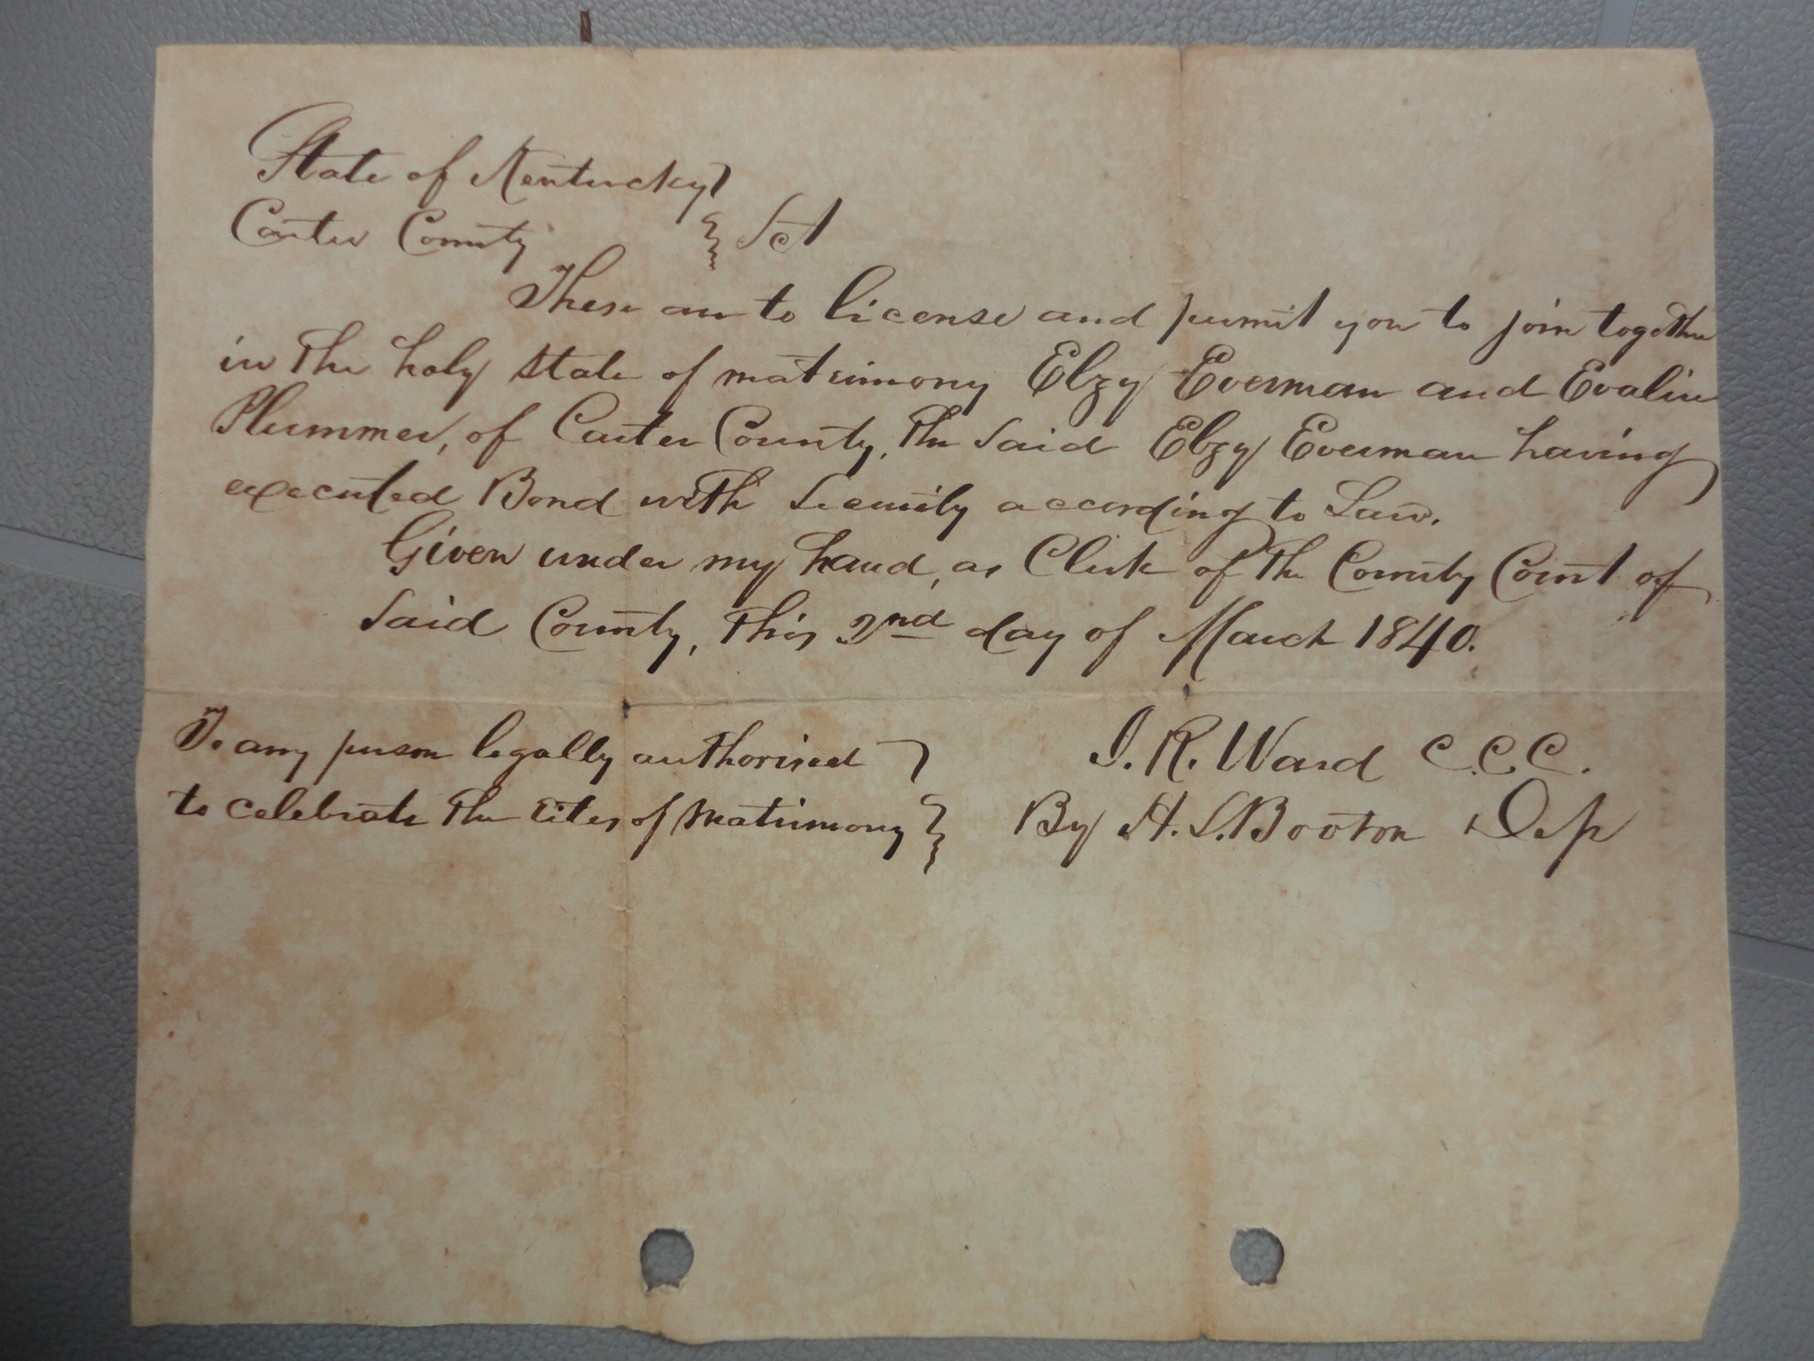 State of Kentucky }
Carter County } Sct
These are to license and permit you to join together
in the holy state of matrimony Elzy Everman and Evaline
Plummer, of Carter County, the said Elzy Everman having
executed Bond with Security according to Law.
Given under my hand, as Clerk of the County Court of
said County, this 2nd day of March 1840.
To any person legally authorised }
to celebrate the rites of matrimony }
J. R. Ward C.C.C.
By H. S. Booton Dep